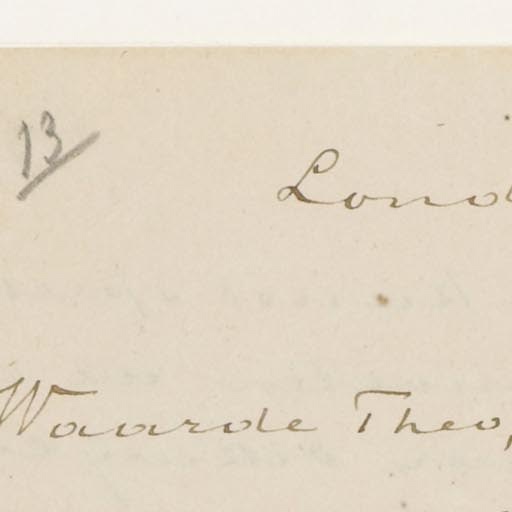 13
Lond
Waarde Theo,